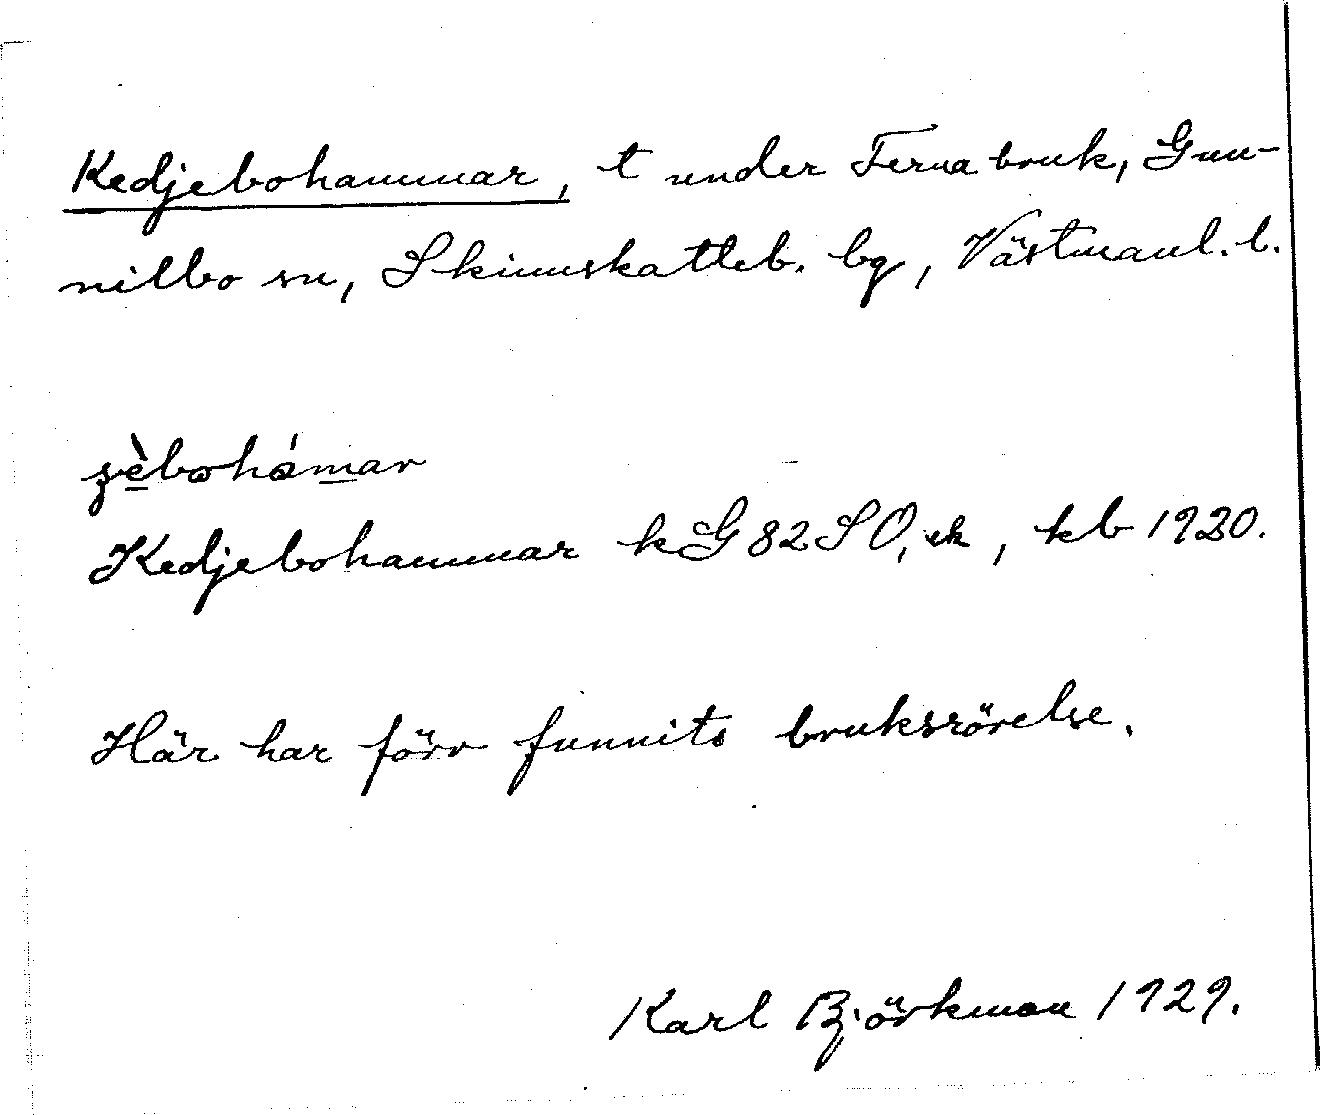 Kedjebohammar, t under Ferna bruk, Gun-
nilbo sn, Skinnskatteb. bg, Västmanl. l.
Kedjebohammar k G 82 SO, ek, kb 1920.
Här har förr funnits bruksrörelse.
Karl Björkman 1929.